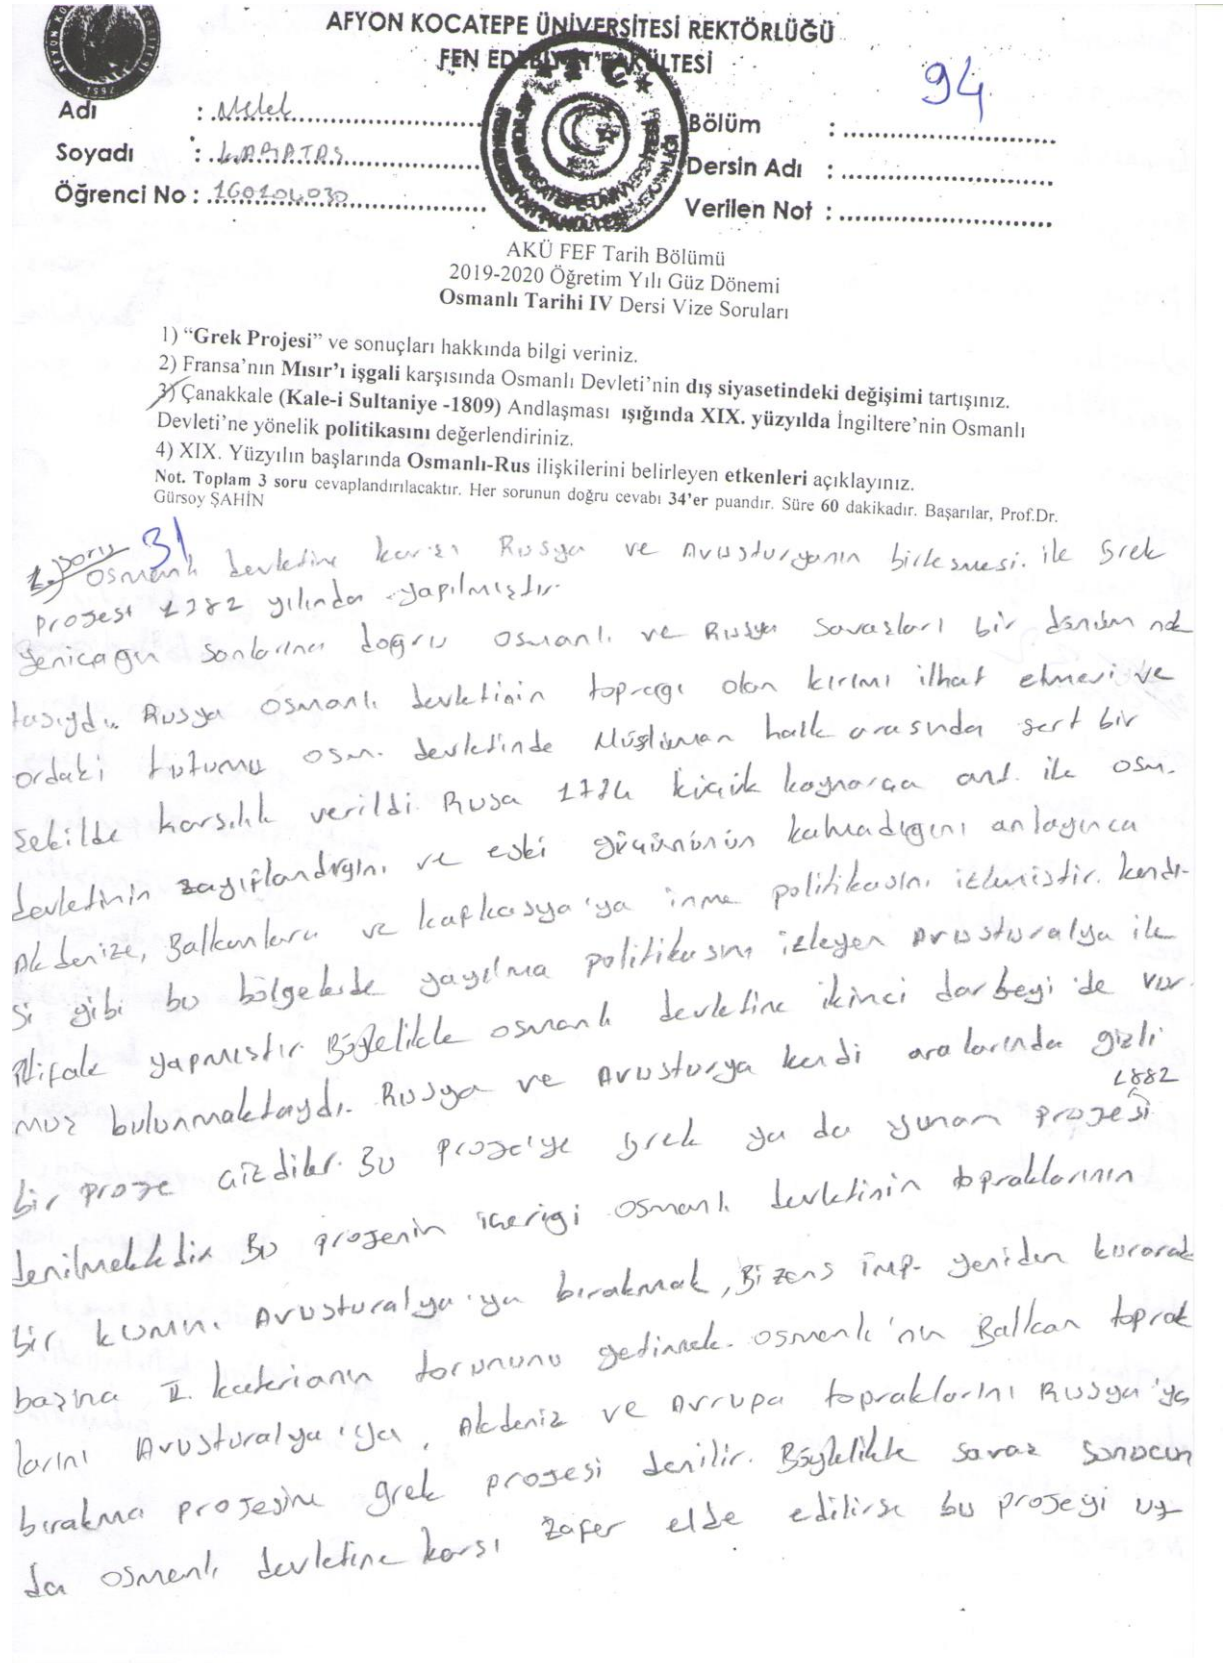 AFYON KOCATEPE ÜNİVERSİTESİ REKTÖRLÜĞÜ
FEN EDEBİYAT FAKÜLTESİ
94
Adı : Melek
Bölüm :
Soyadı : KARATAŞ
Dersin Adı :
Öğrenci No : 160104030
Verilen Not :
AKÜ FEF Tarih Bölümü
2019-2020 Öğretim Yılı Güz Dönemi
Osmanlı Tarihi IV Dersi Vize Soruları
1) “Grek Projesi” ve sonuçları hakkında bilgi veriniz.
2) Fransa’nın Mısır’ı işgali karşısında Osmanlı Devleti’nin dış siyasetindeki değişimi tartışınız.
3) Çanakkale (Kale-i Sultaniye -1809) Andlaşması ışığında XIX. yüzyılda İngiltere’nin Osmanlı
Devleti’ne yönelik politikasını değerlendiriniz.
4) XIX. Yüzyılın başlarında Osmanlı-Rus ilişkilerini belirleyen etkenleri açıklayınız.
Not. Toplam 3 soru cevaplandırılacaktır. Her sorunun doğru cevabı 34’er puandır. Süre 60 dakikadır. Başarılar, Prof.Dr.
Gürsoy ŞAHİN
1. soru 31
Osmanlı devletine karşı Rusya ve Avusturyanın birleşmesi ile Grek
projesi 1782 yılında yapılmıştır.
Yeniçağın sonlarına doğru Osmanlı ve Rusya savaşları bir dönüm nok
tasıydı. Rusya Osmanlı devletinin toprağı olan kırımı ilhat etmesi ve
ordaki tutumu osm. devletinde Müslüman halk arasında sert bir
şekilde karşılık verildi. Rusa 1774 küçük kaynarca ant. ile osm.
devletinin zayıflandığını ve eski gücününün kalmadığını anlayınca
Akdenize, Balkanlara ve kafkasya'ya inme politikasını izlemiştir. kendi-
si gibi bu bölgelerde yayılma politikasını izleyen Avusturalya ile
ittifak yapmıştır. Böylelikle osmanlı devletine ikinci darbeyi'de vur-
muş bulunmaktaydı. Rusya ve Avusturya kendi aralarında gizli
1882
bir proje çizdiler. Bu proje'ye Grek ya da yunan projesi
denilmektedir. Bu projenin içeriği osmanlı devletinin topraklarının
bir kısmını Avusturalya'ya bırakmak, Bizans imp. yeniden kurarak
başına II. katerianın torununu getirmek. Osmanlı'nın Balkan toprak
larını Avusturalya'ya, Akdeniz ve Avrupa topraklarını Rusya'ya
bırakma projesine grek projesi denilir. Böylelikle savaş sonucun
da osmanlı devletine karşı zafer elde edilirse bu projeyi uy